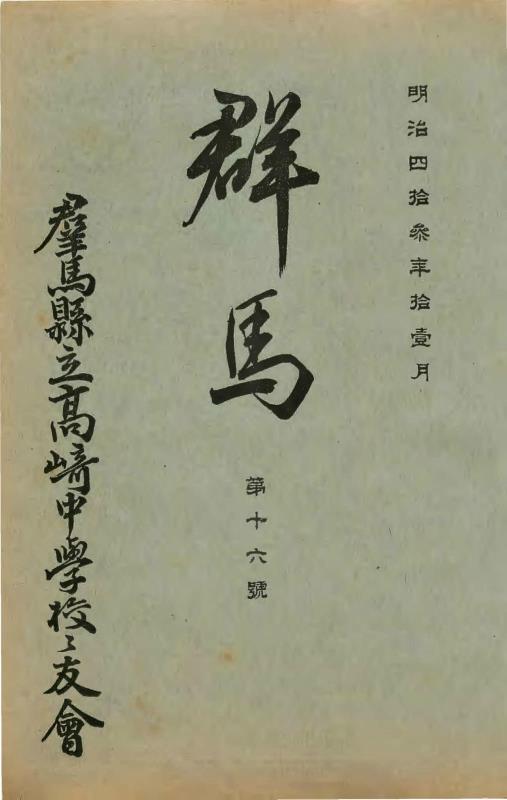 明治四拾參年拾壹月
群馬
第十六號
羣馬縣立高崎中學校々友會